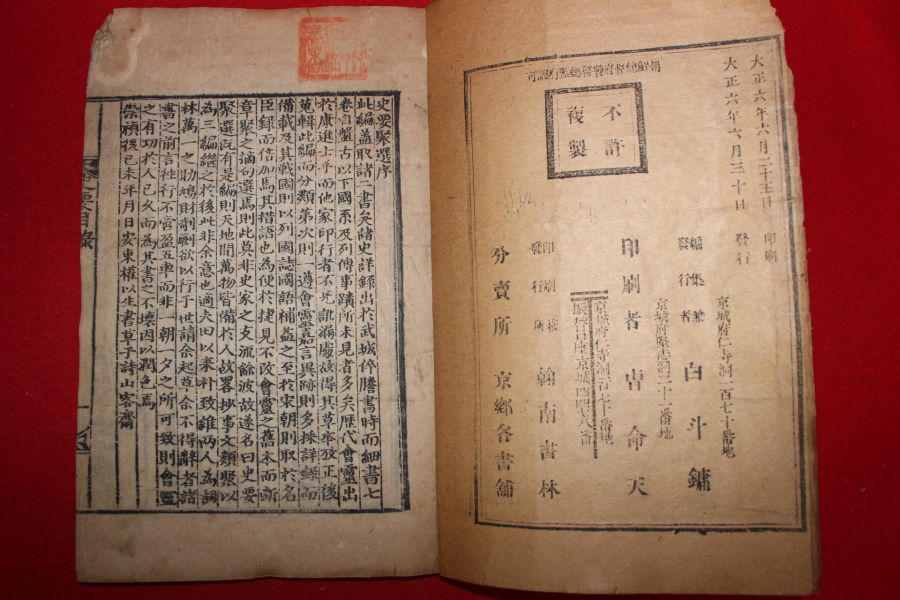 大正六年六月二十五日 印刷
大正六年六月三十日 發行
朝鮮總督府警務總監府認可
不許
複製
京城府仁寺洞一百七十番地
編集兼發行者 白斗鏞
志洞二十一番地
印刷者 曺命天
京城府仁寺洞一百七十番地
振替口座京城四四八番
印刷兼發行所 翰南書林
分賣所 京鄉各書舖
史要聚選序
此編盖取諸二書矣諸史詳錄出於武城倅賸書時而細書七
卷自盤古以下國系及列傳事蹟所未見者多矣歷代會靈出
於康進士手而他家印行者不免訛漏處故得其草本攷正後
蒐輯此編而分類第次則一遵會靈嘉言異跡則多採詳錄而
備載及其戰國則以列國誌國語補益之至於宋朝則取於名
臣錄而倍加焉其措語也為便於捷見不改會靈之舊本而斷
章聚之適句選焉則此莫非史家之支流餘波故遂名曰史要
聚選旣有是編則天地間萬物皆備於人故畧抄事文類聚以
為三編繼之於後此非余意也適大田以來朴致維兩人為詞
林萬一之助鳩財剞劂欲以行于世請余起草余不得辭者諸
書之前言徃行不啻盈五車而非一朝一夕之所可致則會靈
之有功於人已久而為其書之不壞因以潤色焉
崇禎後已未年月日安東權以生書草于詩山客齋
史要目錄